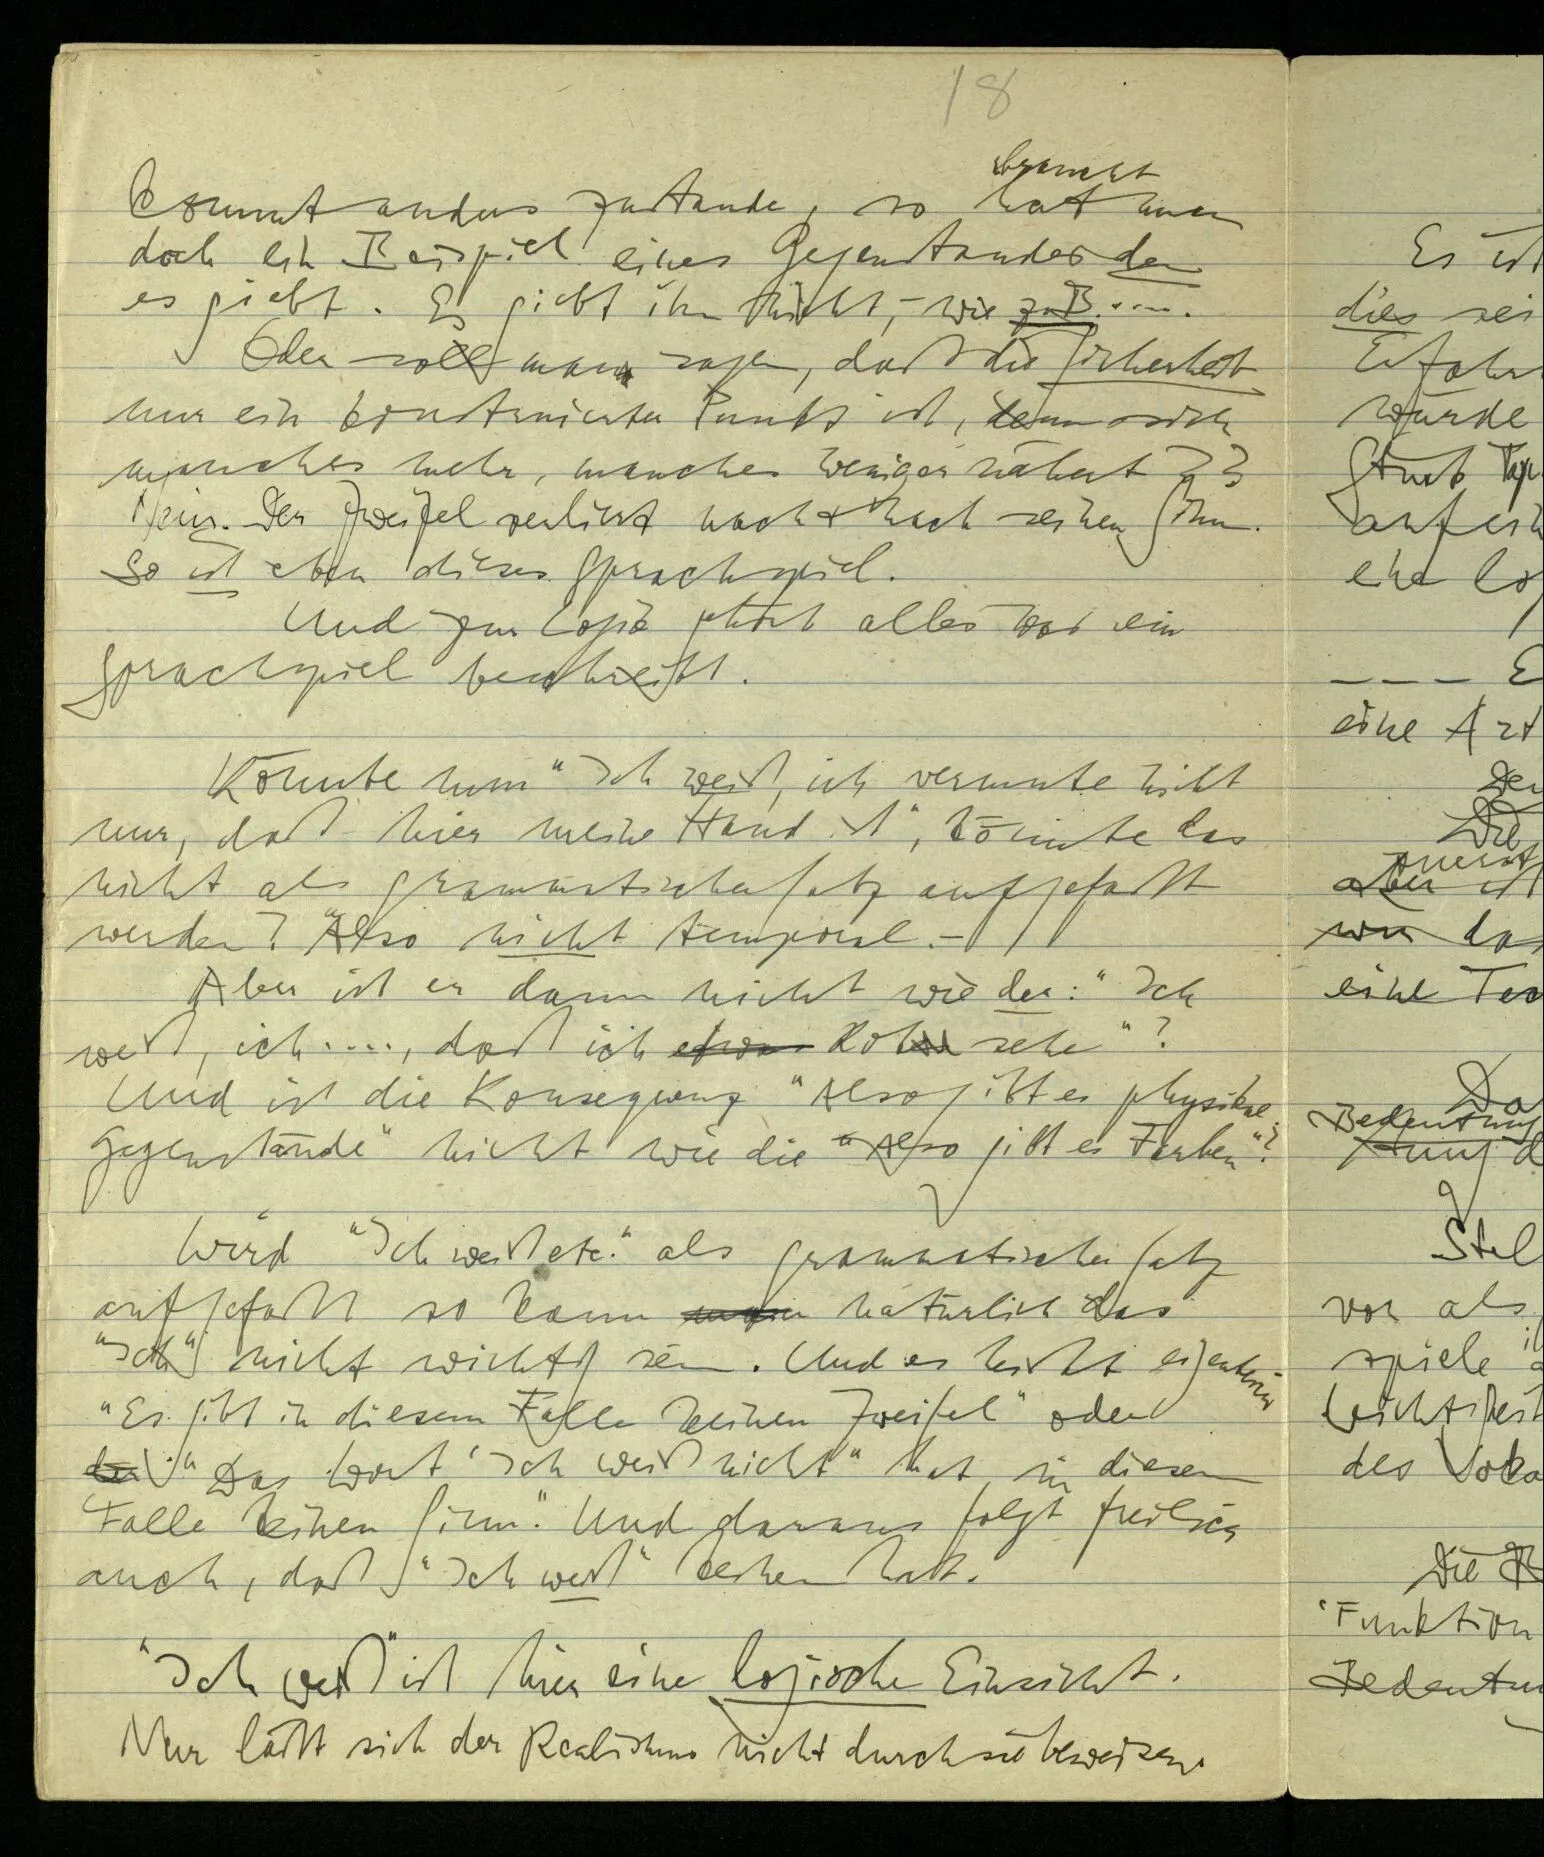 18
braucht
kommt anders zustande, so hat man
doch ein Beispiel eines Gegenstandes den
es giebt. Es giebt ihn nicht, – wie z.B. ....
Oder soll man sagen, daß die Sicherheit
nur ein konstruierter Punkt ist, dem sich
manches mehr, manches weniger nähert??
Nein. Der Zweifel verliert nach & nach seinen Sinn.
So ist eben dieses Sprachspiel.
Und zur Logik gehört alles was ein
Sprachspiel beschreibt.
Könnte nun "Ich weiß, ich vermute nicht
nur, daß hier meine Hand ist", könnte das
nicht als grammatischer Satz aufgefaßt
werden? Also nicht temporal. –
Aber ist er dann nicht wie der: "Ich
weiß, ich ...., daß ich etwas Rot sehe"?
Und ist die Konsequenz "Also gibt es physikal.
Gegenstände" nicht wie die "Also gibt es Farben"?
Wird "Ich weiß etc." als grammatischer Satz
aufgefaßt so kann natürlich das
"Ich" nicht wichtig sein. Und es heißt eigentlich
"Es gibt in diesem Falle keinen Zweifel" oder
"Das Wort 'Ich weiß nicht" hat in diesem
Falle keinen Sinn". Und daraus folgt freilich
auch, daß "Ich weiß" keinen hat.
"Ich weiß" ist hier eine logische Einsicht.
Nur läßt sich der Realismus nicht durch sie beweisen.
Es ist
dies sei
Erfahr
würde
Stück Pap
auf ein
eine lo
– – – E
eine Art
Der
Die
aber ist
wie das
eine Tex
Da
Bedeutung
Stel
vor als
spiele
wichtigst
des Voka
Die B
'Funktion
Bedeutun